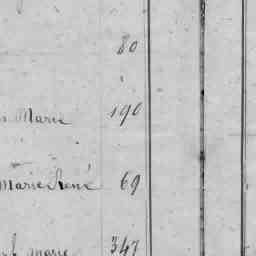 80
Marie 190
Marie René 69
marie 347